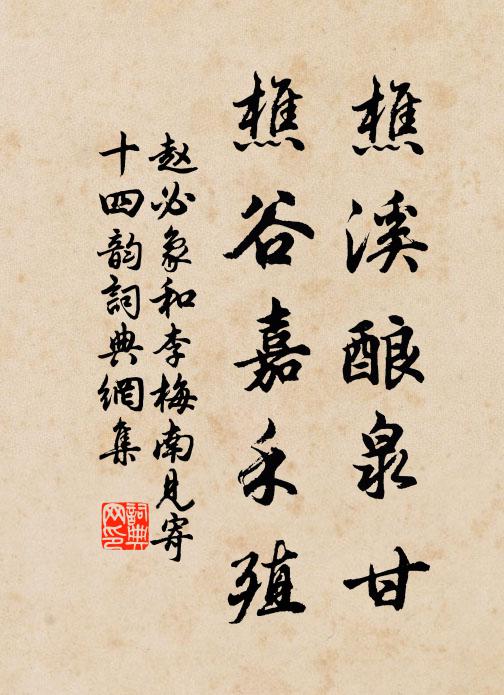 樵溪酿泉甘
樵谷嘉禾殖
赵必象和李梅南見寄
十四韵詞典網集
詞典网印